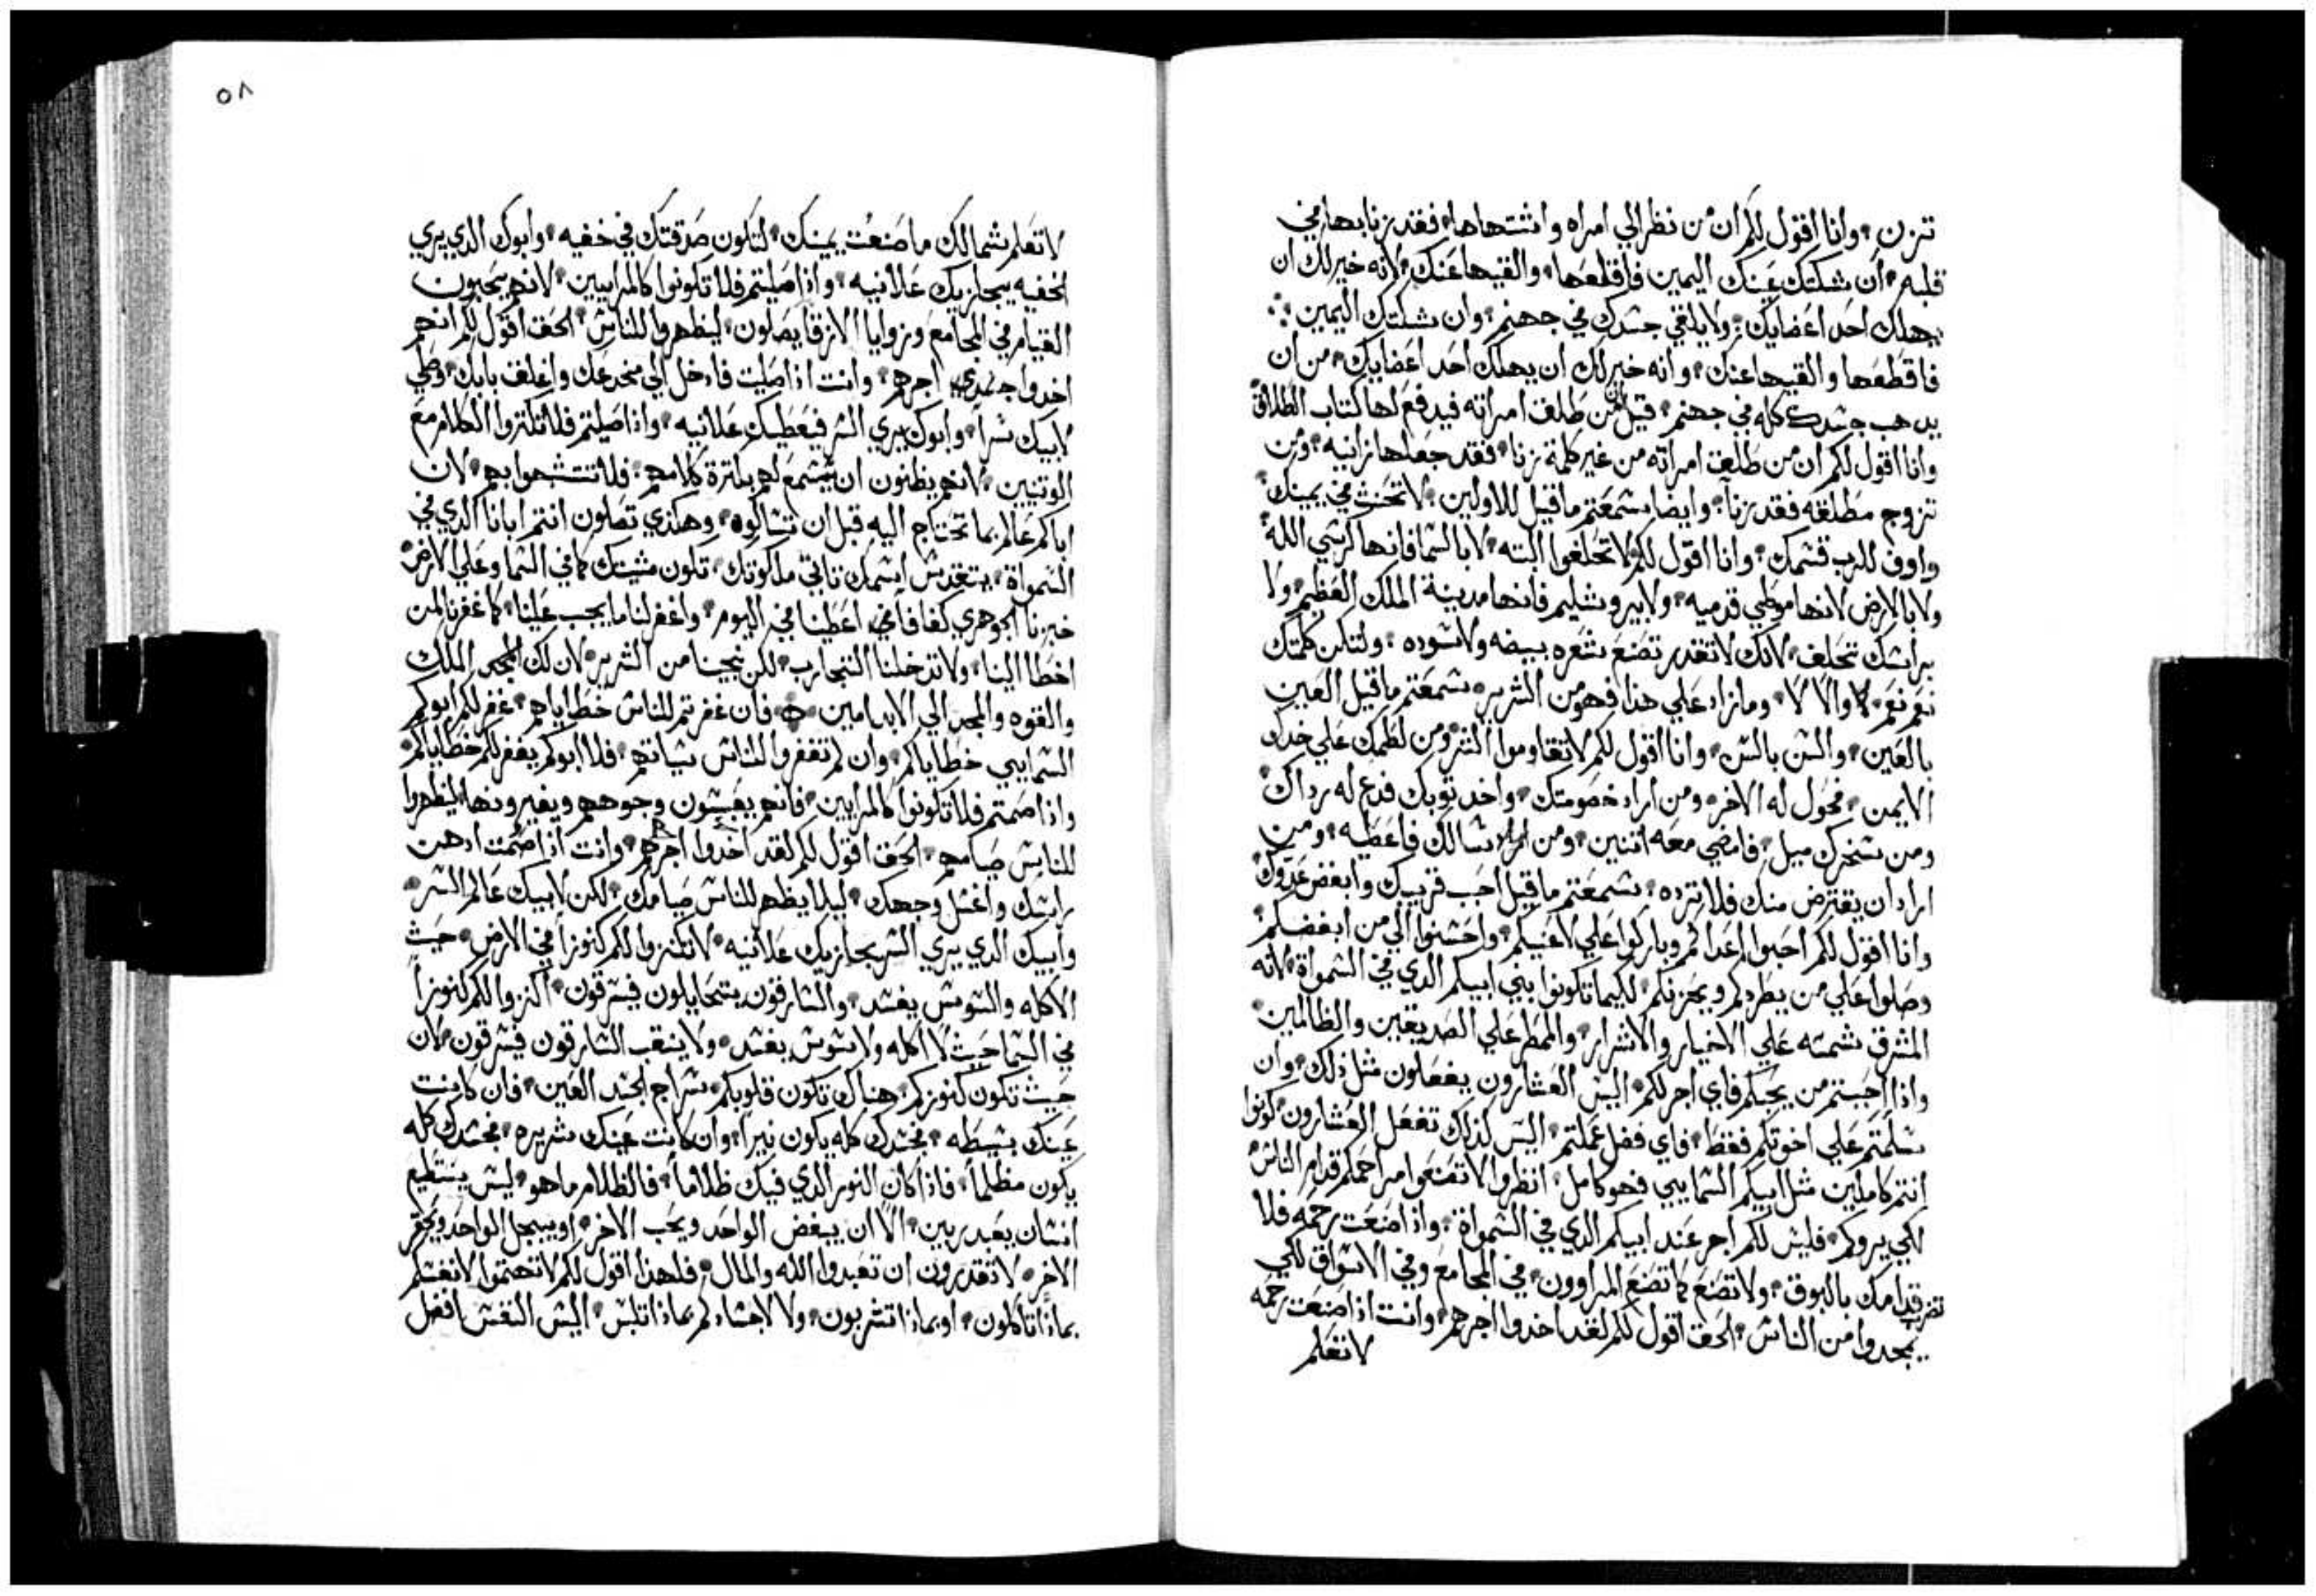 تزن وانا اقول لكم ان من نظر الي امراه واشتهاها فقد زنا بها في
قلبه ان شككتك عينك اليمين فاقلعها والقيها عنك لانه خير لك ان
يهلك احد اعضايك ولا يلقي جسدك في جهنم وان شككتك اليمين
فاقطعها والقيها عنك وانه خير لك ان يهلك احد اعضايك من ان
يدهب جسدك كله في جهنم قيل ان من طلق امراته فيدفع لها كتاب الطلاق
وانا اقول لكم ان من طلق امراته من غير كلمة زنا فقد جعلها زانيه ومن
تزوج مطلقه فقد زنا وايضا سمعتم ما قيل للاولين لا تحنث في يمينك
واوف للرب قسمك وانا اقول لكم لا تحلفوا البته لا بالسما فانها كرسي الله
ولا بالارض لانها موطي قدميه ولا بيروشليم فانها مدينة الملك العظيم ولا
براسك تحلف لانك لا تقدر تصنع شعره بيضه ولا سوده ولتكن كلمتك
نعم نعم لا والا لا وما زاد علي هذا فهو من الشرير سمعتم ما قيل العين
بالعين والسن بالسن وانا اقول لكم لا تقاوموا الشر ومن لطمك علي خدك
الايمن فحول له الاخر ومن اراد خصومتك واخد توبك فدع له رداك
ومن سخرك ميل فامضي معه اتنين ومن سالك فاعطيه ومن
اراد ان يقترض منك فلا ترده سمعتم ما قيل احب قريبك وابغض عدوك
وانا اقول لكم احبوا اعداكم وباركوا علي لاعنيكم واحسنوا الي من ابغضكم
وصلوا علي من يطردكم ويحزنكم لكيما تكونوا بني ابيكم الدي في السمواة لانه
المشرق شمسه علي الاخيار والاشرار والممطر علي الصديقين والظالمين
واذا احببتم من يحبكم فاي اجر لكم اليس العشارون يفعلون مثل ذلك وان
سلمتم علي اخوتكم فقط فاي فضل عملتم اليس كذلك تفعل العشارون كونوا
انتم كاملين مثل ابيكم السمايي فهو كامل انظروا لا تصنعوا مراحمكم قدام الناس
لكي يروكم فليس لكم اجر عند ابيكم الدي في السمواة واذا صنعت رحمه فلا
تضرب قدامك بالبوق ولا تصنع كما تصنع المراوون في المجامع وفي الاسواق لكي
يمجدوا من الناس الحق اقول لكم لقد اخدوا اجرهم وانت اذا صنعت رحمه
لا تعلم
٥٨
لا تعلم شمالك ما صنعت يمينك لتكون صدقتك في خفيه وابوك الدي يري
الخفيه يجازيك علانيه واذا صليتم فلا تكونوا كالمراييين لانهم يحبون
القيام في المجامع وزوايا الازقا يصلون ليظهروا للناس الحق اقول لكم انهم
اخدوا اجرهم وانت اذا صليت فادخل الي مخدعك واغلق بابك وصلي
لابيك سراً وابوك يري السر فيعطيك علانيه واذا صليتم فلا تكتروا الكلام مع
الوتنيين لانهم يظنون ان يستمع لهم بكترة كلامهم فلا تتشبهوا بهم لان
اباكم عالم بما تحتاج اليه قبل ان تسالوه وهكذي تصلون انتم ابانا الدي في
السمواة يتقدس اسمك تاتي ملكوتك تكون مشيتك كما في السما وعلي الارض
خبزنا الجوهري كفافاً اعطينا في اليوم واغفر لنا ما يجب علينا كما غفرنا لمن
اخطا الينا ولا تدخلنا التجارب لكن نجينا من الشرير لان لك الملك
والقوه والمجد الي الابد امين فان غفرتم للناس خطاياهم غفر لكم ابوكم
السمايي خطاياكم وان لم تغفروا للناس سياتهم فلا ابوكم يغفر لكم خطاياكم
واذا صمتم فلا تكونوا كالمرايين فانهم يعبسون وجوههم ويغيرونها ليظهروا
للناس صيامهم الحق اقول لكم لقد اخدوا اجرهم وانت اذا صمت ادهن
راسك واغسل وجهك ليلا يظهر للناس صيامك لكن لابيك عالم السر
وابيك الدي يري السر يجازيك علانيه لا تكنزوا لكم كنوزاً في الارض حيث
الاكله والسوس يفسد والسارقون يتحايلون فيسرقون اكنزوا لكم كنوزاً
في السما حيث لا اكله ولا سوس يفسد ولا ينقب السارقون فيسرقون لان
حيث تكون كنوزكم هناك تكون قلوبكم سراج الجسد العين فان كانت
عينك بسيطه فجسدك كله يكون نيراً وان كانت عينك شريره فجسدك كله
يكون مظلماً فاذا كان النور الدي فيك ظلاماً فالظلام ما هو ليس يستطيع
انسان يعبد ربين الا ان يبغض الواحد ويحب الاخر او يبجل الواحد ويحقر
الاخر لا تقدرون ان تعبدوا الله والمال فلهذا اقول لكم لا تهتموا لانفسكم
بماذا تاكلون او بماذا تشربون ولا لاجسادكم بماذا تلبس اليس النفس افضل